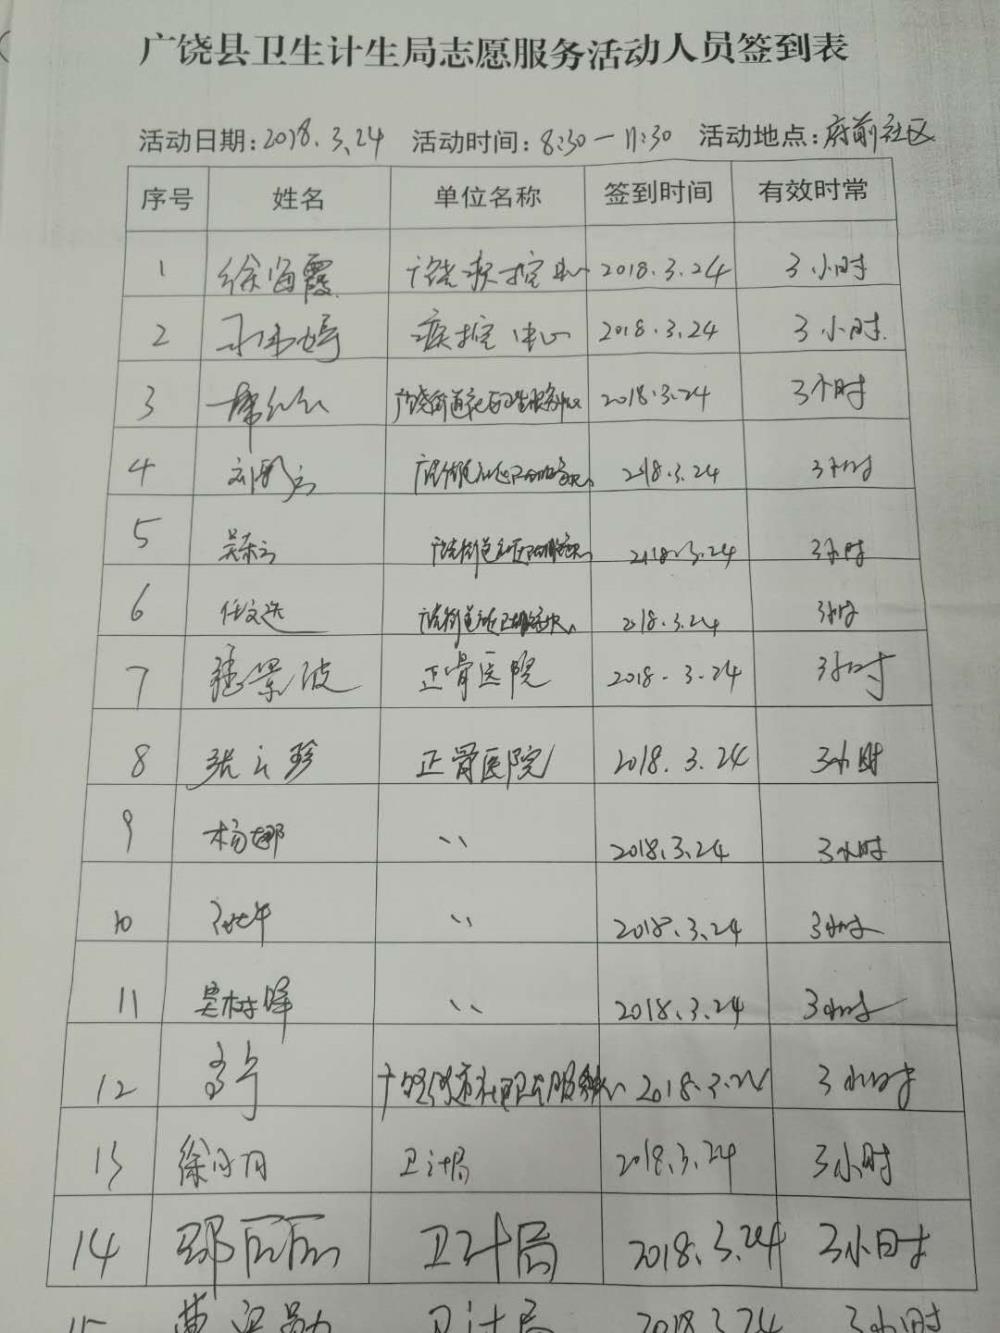 广饶县卫生计生局志愿服务活动人员签到表
活动日期:2018.3.24 活动时间:8:30-11:30 活动地点:府前社区
序号 姓名 单位名称 签到时间 有效时常
1 徐海霞 广饶疾控中心 2018.3.24 3小时
2 疾控中心 2018.3.24 3小时.
3 广饶街道社区卫生服务中心 2018.3.24 3小时
4 2018.3.24 3小时
5 2018.3.24 3小时
6 任文选 2018.3.24 3小时
7 景波 正骨医院 2018.3.24 3小时
8 张云珍 正骨医院 2018.3.24 3小时
9 杨娜 〃 2018.3.24 3小时
10 〃 2018.3.24 3小时
11 吴树峰 〃 2018.3.24 3小时
12 广饶街道社区卫生服务中心 2018.3.24 3小时
13 徐 卫计局 2018.3.24 3小时
14 丽丽 卫计局 2018.3.24 3小时
15 卫计局 2018.3.24 3小时